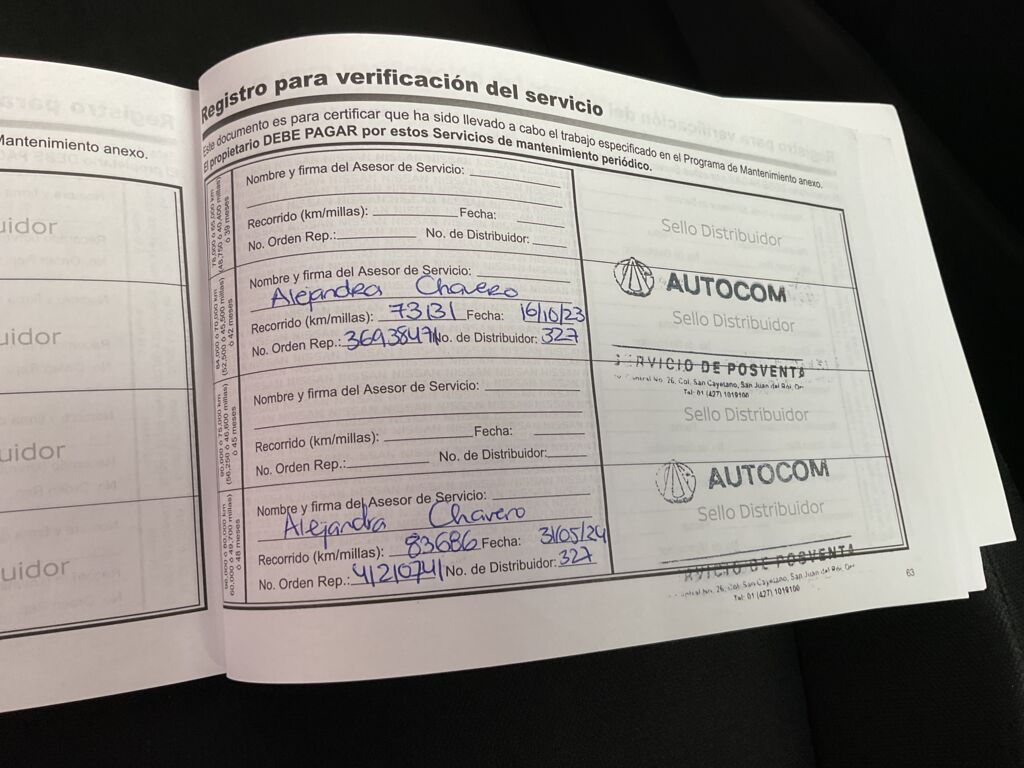 Mantenimiento anexo.
uidor
uidor
uidor
uidor
Registro para verificación del servicio
Este documento es para certificar que ha sido llevado a cabo el trabajo especificado en el Programa de Mantenimiento anexo.
El propietario DEBE PAGAR por estos Servicios de mantenimiento periódico.
Nombre y firma del Asesor de Servicio:
Recorrido (km/millas): Fecha:
No. Orden Rep.: No. de Distribuidor:
ó 39 meses
Sello Distribuidor
Nombre y firma del Asesor de Servicio:
Alejandra Chavero
Recorrido (km/millas): 73131 Fecha: 16/10/23
No. Orden Rep.: No. de Distribuidor: 327
(52,500 ó 45,500 millas)
ó 42 meses
AUTOCOM
Sello Distribuidor
SERVICIO DE POSVENTA
No. 26, Col. San Cayetano, San Juan del Rio,
Tel: 01 (427) 1019100
Nombre y firma del Asesor de Servicio:
Recorrido (km/millas): Fecha:
No. Orden Rep.: No. de Distribuidor:
90,000 ó 75,000 km
(56,250 ó 46,600 millas)
ó 45 meses
Sello Distribuidor
Nombre y firma del Asesor de Servicio:
Alejandra Chavero
Recorrido (km/millas): 83686 Fecha: 31/05/24
No. Orden Rep.: No. de Distribuidor: 327
60,000 ó 49,700 millas)
ó 48 meses
AUTOCOM
Sello Distribuidor
RVICIO DE POSVENTA
No. 26, Col. San Cayetano, San Juan del Rio,
Tel: 01 (427) 1019100
63